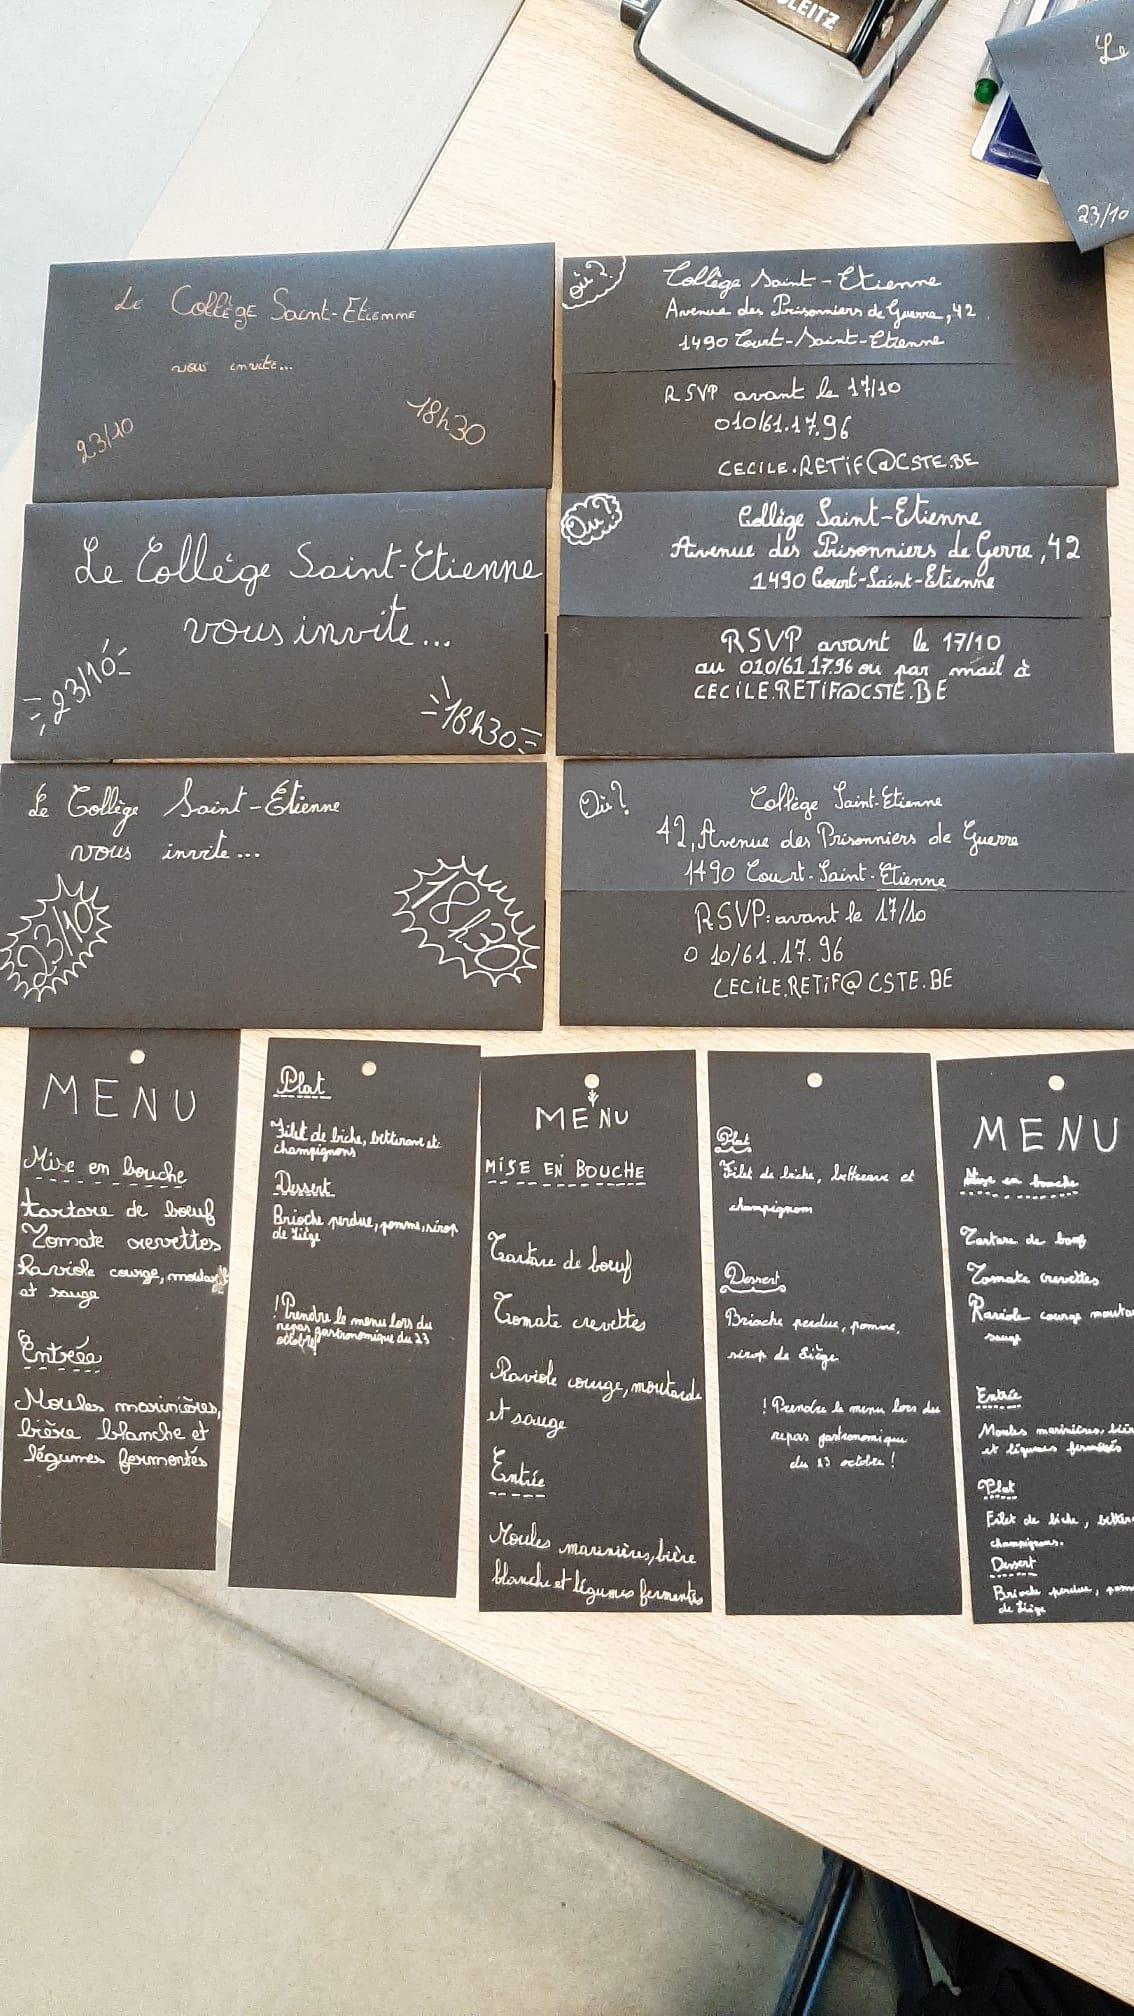 LEITZ
Le
23/10
Le Collège Saint-Etienne
vous invite...
23/10
18h30
Où?
Collège Saint-Etienne
Avenue des Prisonniers de Guerre, 42
1490 Court-Saint-Etienne
RSVP avant le 17/10
010/61.17.96
CECILE.RETIF@CSTE.BE
Le Collège Saint-Etienne
vous invite...
23/10
18h30
Où?
Collège Saint-Etienne
Avenue des Prisonniers de Gerre, 42
1490 Court-Saint-Etienne
RSVP avant le 17/10
au 010/61 17.96 ou par mail à
CECILE.RETIF@CSTE.BE
Le Collège Saint-Etienne
vous invite...
23/10
18h30
Où?
Collège Saint-Etienne
42, Avenue des Prisonniers de Guerre
1490 Court-Saint-Etienne
RSVP: avant le 17/10
010/61.17.96
CECILE.RETIF@CSTE.BE
MENU
Mise en bouche
tartare de bœuf
Tomate crevettes
Raviole courge, moutarde
et sauge
Entrée
Moules marinières,
bière blanche et
légumes fermentés
Plat
Filet de biche, betterave et
champignons
Dessert
Brioche perdue, pomme, sirop
de Liège
! Prendre le menu lors du
repas gastronomique du 23
octobre!
MENU
MISE EN BOUCHE
Tartare de bœuf
Tomate crevettes
Raviole courge, moutarde
et sauge
Entrée
Moules marinières, bière
blanche et légumes fermentés
Plat
Filet de biche, betterave et
champignons
Dessert
Brioche perdue, pomme,
sirop de Liège
! Prendre le menu lors du
repas gastronomique
du 23 octobre!
MENU
Mise en bouche
Tartare de bœuf
Tomate crevettes
Raviole courge mouta
sauge
Entrée
Moules marinières, bièr
et légumes fermentés
Plat
Filet de biche, better
champignons.
Dessert
Brioche perdue, pom
de Liège